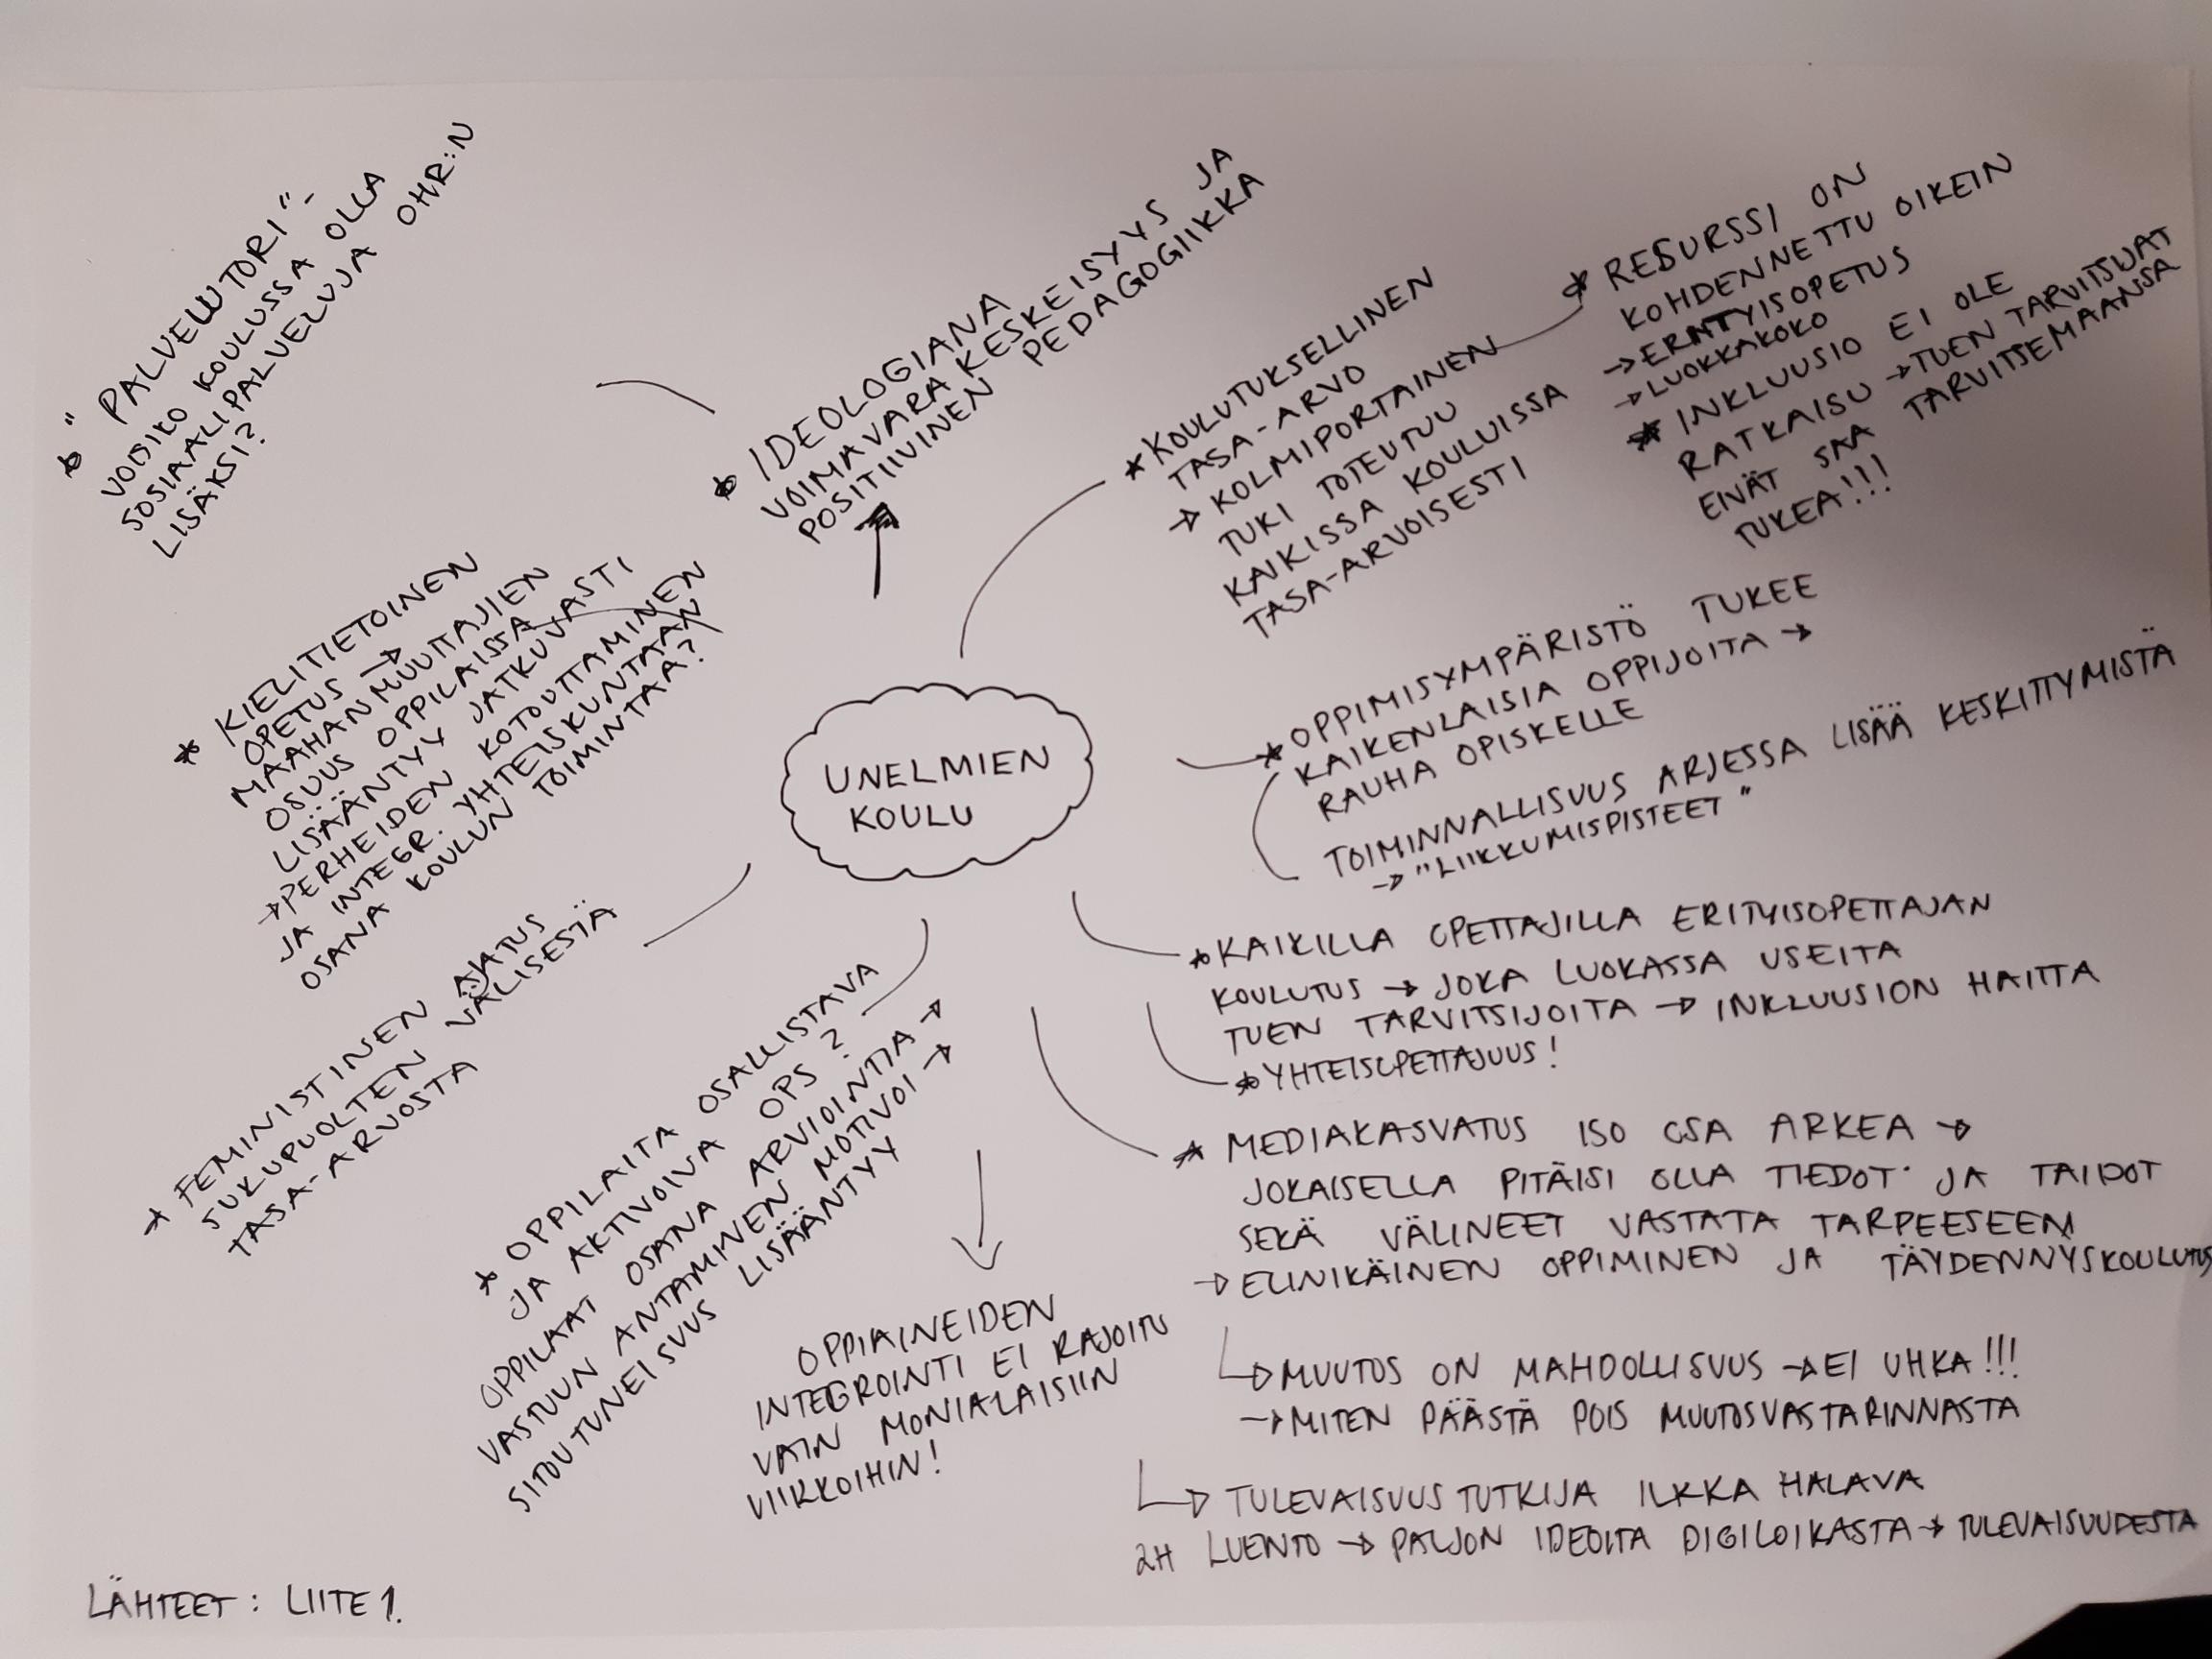 UNELMIEN
KOULU
* "PALVELUTORI"-
VOISIKO KOULUSSA OLLA
SOSIAALIPALVELUJA OHR:N
LISÄKSI?
* IDEOLOGIANA
VOIMAVARAKESKEISYYS JA
POSITIIVINEN PEDAGOGIIKKA
* KOULUTUKSELLINEN
TASA-ARVO
→ KOLMIPORTAINEN
TUKI TOTEUTUU
KAIKISSA KOULUISSA
TASA-ARVOISESTI
* RESURSSI ON
KOHDENNETTU OIKEIN
→ ERITYISOPETUS
→ LUOKKAKOKO
* INKLUUSIO EI OLE
RATKAISU → TUEN TARVITSIJAT
EIVÄT SAA TARVITSEMAANSA
TUKEA!!!
* OPPIMISYMPÄRISTÖ TUKEE
KAIKENLAISIA OPPIJOITA →
RAUHA OPISKELLE
TOIMINNALLISUUS ARJESSA LISÄÄ KESKITTYMISTÄ
→ "LIIKKUMISPISTEET"
* KAIKILLA OPETTAJILLA ERITYISOPETTAJAN
KOULUTUS → JOKA LUOKASSA USEITA
TUEN TARVITSIJOITA → INKLUUSION HAITTA
* YHTEISOPETTAJUUS!
* MEDIAKASVATUS ISO OSA ARKEA →
JOKAISELLA PITÄISI OLLA TIEDOT JA TAIDOT
SEKÄ VÄLINEET VASTATA TARPEESEEN
→ ELINIKÄINEN OPPIMINEN JA TÄYDENNYSKOULUTUS
→ MUUTOS ON MAHDOLLISUUS → EI UHKA!!!
→ MITEN PÄÄSTÄ POIS MUUTOSVASTARINNASTA
→ TULEVAISUUSTUTKIJA ILKKA HALAVA
2H LUENTO → PALJON IDEOITA DIGILOIKASTA → TULEVAISUUDESTA
OPPIAINEIDEN
INTEGROINTI EI RAJOITU
VAIN MONIALAISIIN
VIIKKOIHIN!
* OPPILAITA OSALLISTAVA
JA AKTIVOIVA OPS?
OPPILAAT OSANA ARVIOINTIA →
VASTUUN ANTAMINEN MOTIVOI →
SITOUTUNEISUUS LISÄÄNTYY
* FEMINISTINEN AJATUS
SUKUPUOLTEN VÄLISESTÄ
TASA-ARVOSTA
* KIELITIETOINEN
OPETUS →
MAAHANMUUTTAJIEN
OSUUS OPPILAISSA
LISÄÄNTYY JATKUVASTI
→ PERHEIDEN KOTOUTTAMINEN
JA INTEGR. YHTEISKUNTAAN
OSANA KOULUN TOIMINTAA?
LÄHTEET: LIITE 1.